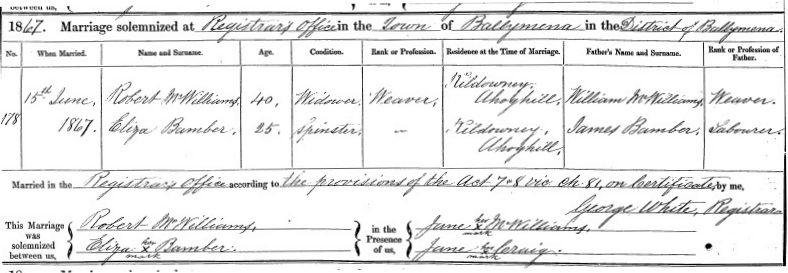 1867. Marriage solemnized at Registrar's Office in the Town of Ballymena in the District of Ballymena
No. When Married. Name and Surname. Age. Condition. Rank or Profession. Residence at the Time of Marriage. Father's Name and Surname. Rank or Profession of Father.
178 15th June, 1867. Robert McWilliams, 40, Widower, Weaver, Kildowney, Ahoghill, William McWilliams, Weaver.
Eliza Bamber. 25. Spinster. — Kildowney, Ahoghill. James Bamber. Labourer.
Married in the Registrar's Office according to the provisions of the Act 7 & 8 Vic. Ch. 81, on Certificate, by me,
George White, Registrar
This Marriage was solemnized between us, Robert McWilliams, in the Presence of us, Jane her x mark McWilliams,
Eliza her x mark Bamber. Jane her x mark Craig.